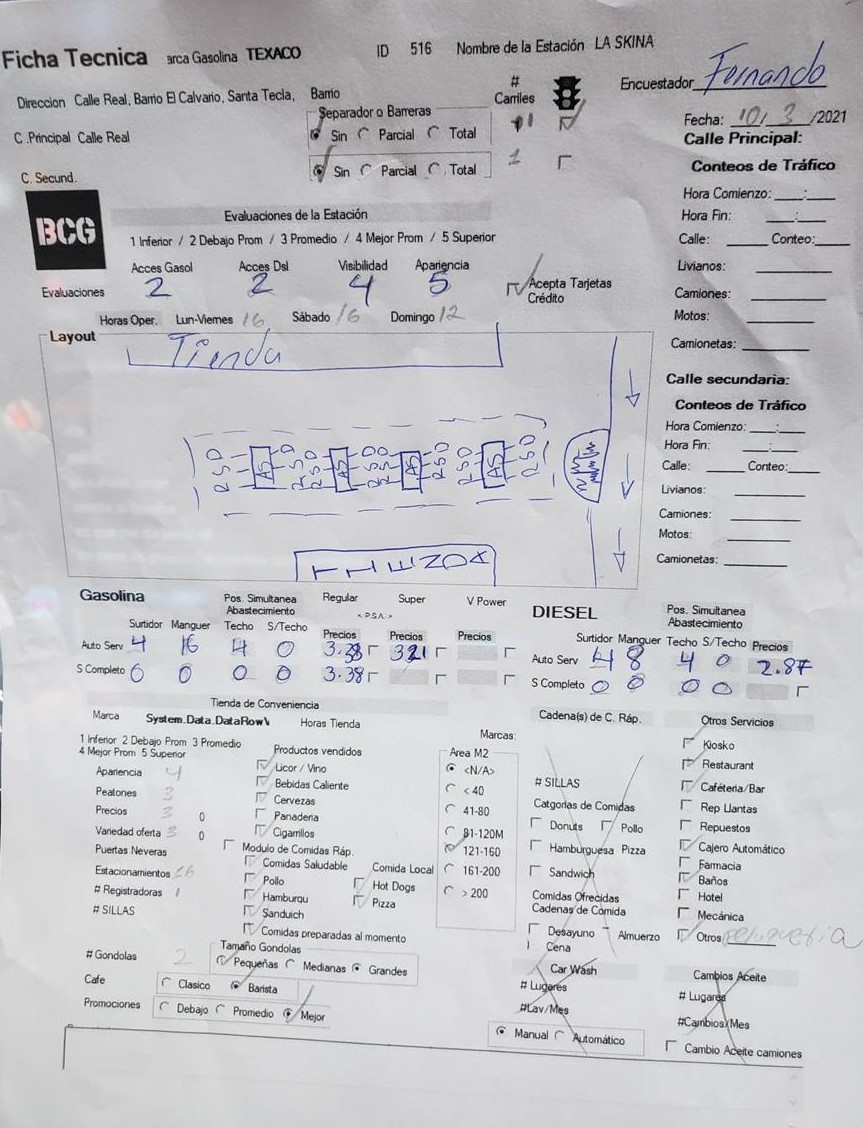 Ficha Tecnica arca Gasolina TEXACO ID 516 Nombre de la Estación LA SKINA
Encuestador Fernando
Direccion Calle Real, Barrio El Calvario, Santa Tecla, Barrio
# Carriles
Fecha: 10/3/2021
Separador o Barreras
C .Principal Calle Real
Sin Parcial Total 1
Calle Principal:
C. Secund.
Sin Parcial Total 1
Conteos de Tráfico
BCG
Evaluaciones de la Estación
Hora Comienzo: ____:____
1 Inferior / 2 Debajo Prom / 3 Promedio / 4 Mejor Prom / 5 Superior
Hora Fin: ____:____
Calle: ____ Conteo:____
Acces Gasol Acces Dsl Visibilidad Apariencia
Livianos: ____
Evaluaciones 2 2 4 5 Acepta Tarjetas Crédito
Camiones: ____
Motos: ____
Horas Oper. Lun-Viernes 16 Sábado 16 Domingo 12
Camionetas: ____
Layout
Tienda
Calle secundaria:
Conteos de Tráfico
Hora Comienzo: ____:____
Hora Fin: ____:____
Calle: ____ Conteo:____
Livianos: ____
Camiones: ____
Motos: ____
Camionetas: ____
RSD AS RSD RSD AS RSD RSD AS RSD RSD AS RSD
TIENDA
Gasolina
Pos. Simultanea Abastecimiento
Regular Super V Power
<.PSA.>
Surtidor Manguer Techo S/Techo Precios Precios Precios
Auto Serv 4 16 4 0 3.28 3.21
S Completo 0 0 0 0 3.38
DIESEL
Pos. Simultanea Abastecimiento
Surtidor Manguer Techo S/Techo Precios
Auto Serv 4 8 4 0 2.87
S Completo 0 0 0 0
Tienda de Conveniencia
Marca System.Data.DataRowV Horas Tienda
1 Inferior 2 Debajo Prom 3 Promedio
4 Mejor Prom 5 Superior
Apariencia 4
Peatones 3
Precios 3 0
Variedad oferta 3 0
Puertas Neveras
Estacionamientos 16
# Registradoras 1
# SILLAS
# Gondolas 2
Cafe Clasico Barista
Promociones Debajo Promedio Mejor
Productos vendidos
Licor / Vino
Bebidas Caliente
Cervezas
Panaderia
Cigarrillos
Modulo de Comidas Ráp.
Comidas Saludable
Pollo
Hamburgu
Sanduich
Comidas preparadas al momento
Comida Local
Hot Dogs
Pizza
Tamaño Gondolas
Pequeñas Medianas Grandes
Marcas:
Area M2
<N/A>
< 40
41-80
81-120M
121-160
161-200
> 200
Cadena(s) de C. Ráp.
# SILLAS
Catgorias de Comidas
Donuts Pollo
Hamburguesa Pizza
Sandwich
Comidas Ofrecidas
Cadenas de Comida
Desayuno Almuerzo
Cena
Car Wash
# Lugares
#Lav/Mes
Manual Automático
Otros Servicios
Kiosko
Restaurant
Cafétería/Bar
Rep Llantas
Repuestos
Cajero Automático
Farmacia
Baños
Hotel
Mecánica
Otros peluqueria
Cambios Aceite
# Lugares
#Cambios/Mes
Cambio Aceite camiones